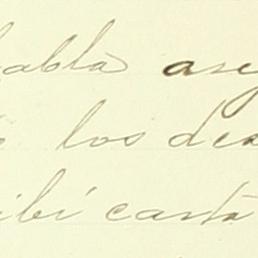 habla ase
los des
ibí carta